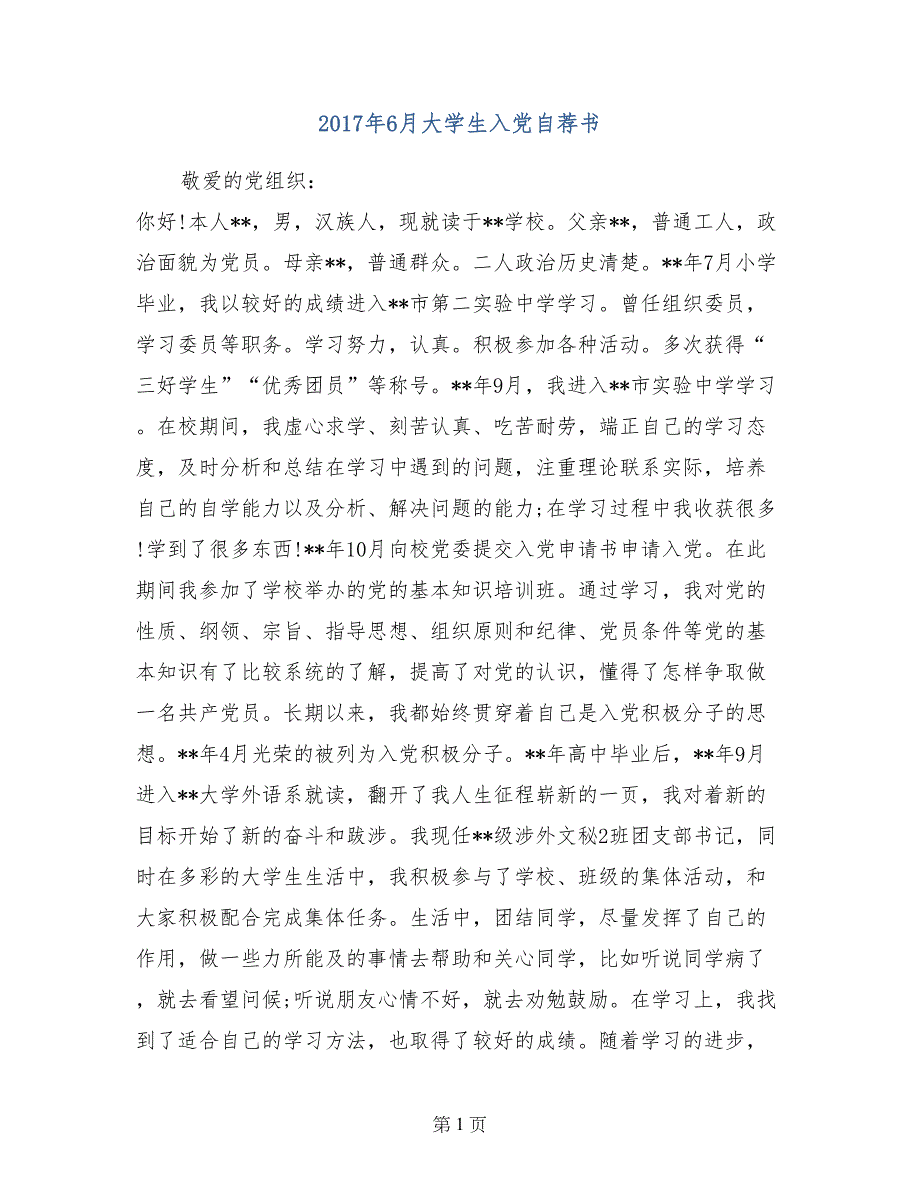 2017年6月大学生入党自荐书
敬爱的党组织：
你好!本人**，男，汉族人，现就读于**学校。父亲**，普通工人，政
治面貌为党员。母亲**，普通群众。二人政治历史清楚。**年7月小学
毕业，我以较好的成绩进入**市第二实验中学学习。曾任组织委员，
学习委员等职务。学习努力，认真。积极参加各种活动。多次获得“
三好学生”“优秀团员”等称号。**年9月，我进入**市实验中学学习
。在校期间，我虚心求学、刻苦认真、吃苦耐劳，端正自己的学习态
度，及时分析和总结在学习中遇到的问题，注重理论联系实际，培养
自己的自学能力以及分析、解决问题的能力;在学习过程中我收获很多
!学到了很多东西!**年10月向校党委提交入党申请书申请入党。在此
期间我参加了学校举办的党的基本知识培训班。通过学习，我对党的
性质、纲领、宗旨、指导思想、组织原则和纪律、党员条件等党的基
本知识有了比较系统的了解，提高了对党的认识，懂得了怎样争取做
一名共产党员。长期以来，我都始终贯穿着自己是入党积极分子的思
想。**年4月光荣的被列为入党积极分子。**年高中毕业后，**年9月
进入**大学外语系就读，翻开了我人生征程崭新的一页，我对着新的
目标开始了新的奋斗和跋涉。我现任**级涉外文秘2班团支部书记，同
时在多彩的大学生生活中，我积极参与了学校、班级的集体活动，和
大家积极配合完成集体任务。生活中，团结同学，尽量发挥了自己的
作用，做一些力所能及的事情去帮助和关心同学，比如听说同学病了
，就去看望问候;听说朋友心情不好，就去劝勉鼓励。在学习上，我找
到了适合自己的学习方法，也取得了较好的成绩。随着学习的进步，
第 1 页